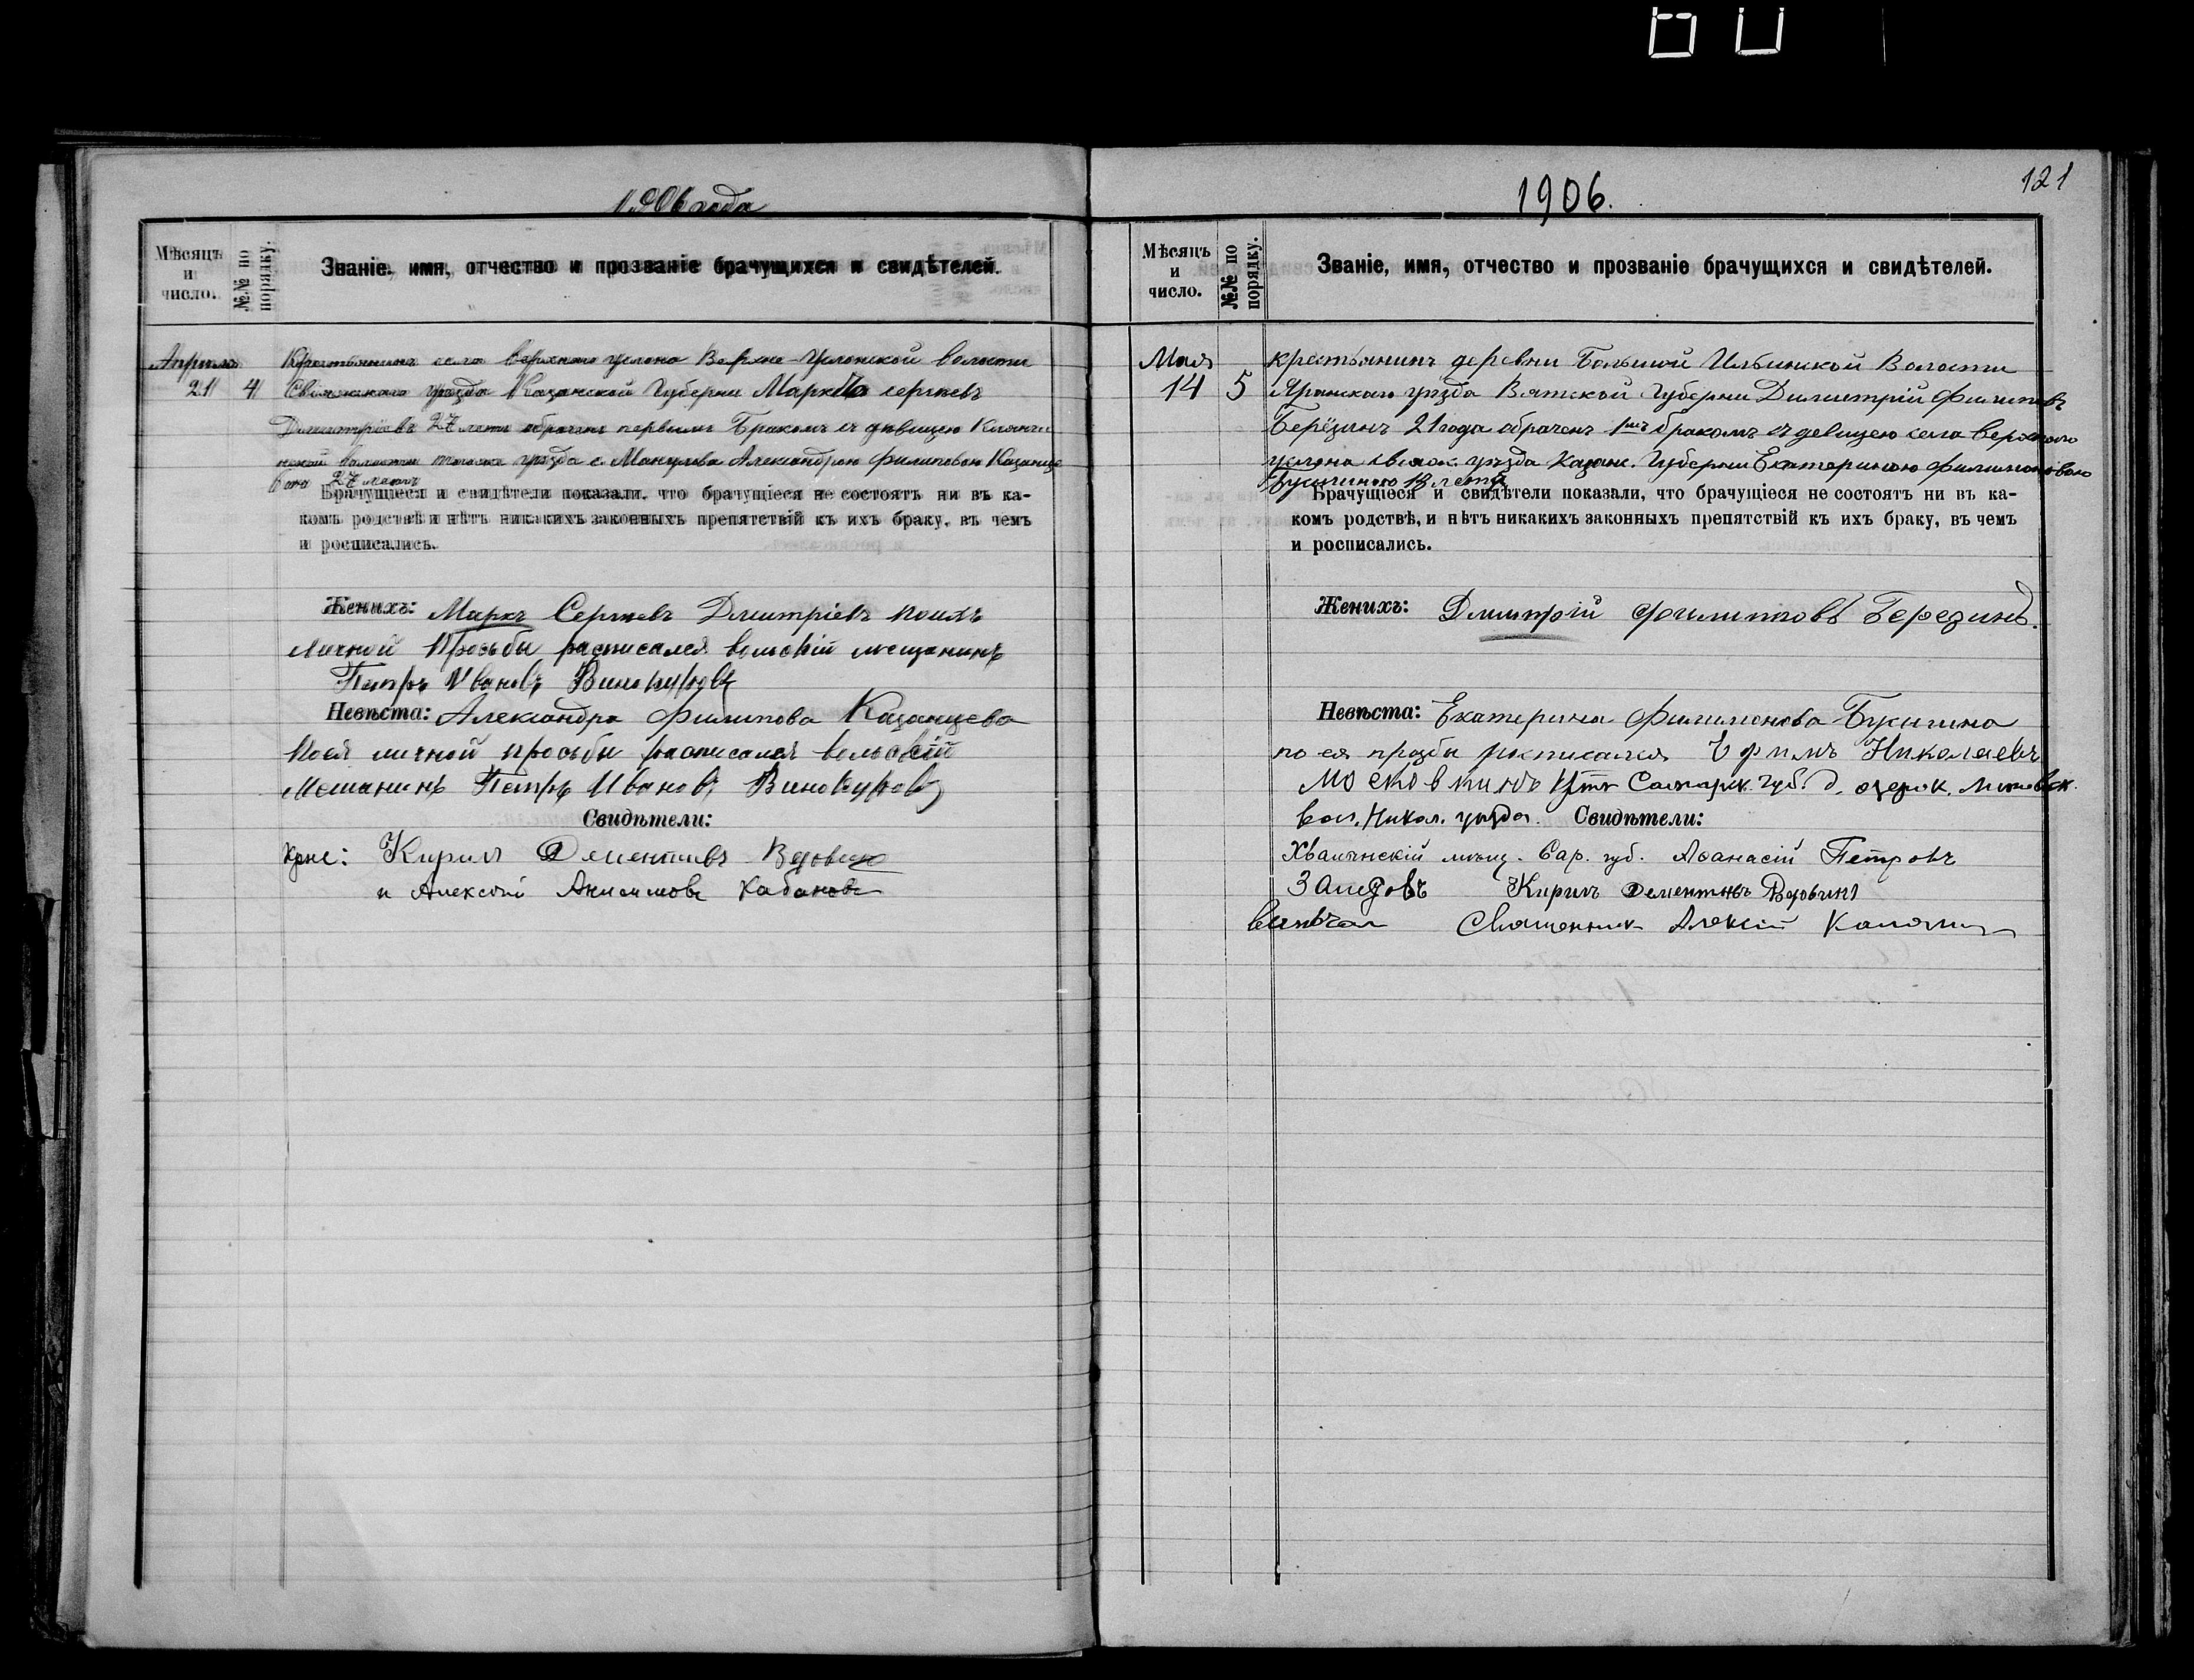 1906 года
Мѣсяцъ и число.
№№ по порядку.
Званіе, имя, отчество и прозваніе брачущихся и свидѣтелей.
Апрѣль 21 4
Крестьянинъ села верхняго услона Верхне-Услонской волости
Свіяжскаго уѣзда Казанской Губерни Марк сергѣевъ
Дмитріевъ 27 летъ обрачен первымъ Бракомъ съ дѣвицею
волости тогоже уѣзда с. Макулова Александрой Филиповой Казанце
вою 27 летъ
Брачущіеся и свидѣтели показали, что брачущіеся не состоятъ ни въ ка-
комъ родствѣ и нѣтъ никакихъ законныхъ препятствій къ ихъ браку, въ чемъ
и росписались.
Женихъ: Маркъ Сергѣевъ Дмитріевъ поихъ
личной просьбы расписался вольскій мещанинъ
Петръ Ивановъ Винокуровъ
Невѣста: Александра Филипова Казанцева
поея личной просьбы расписался вольскій
Мешанинъ Петръ Ивановъ Винокуровъ
Свидѣтели:
Кирилъ Дементьевъ Вдовинъ
и Алексѣй Анисимовъ Кабановъ
1906.
121
Мѣсяцъ и число.
№№ по порядку.
Званіе, имя, отчество и прозваніе брачущихся и свидѣтелей.
Мая 14 5
крестьянинъ деревни Большой Ильинской Волости
Яранскаго уѣзда Вятской Губерни Димитрій Филиповъ
Берёзинъ 21 года обраченъ 1мъ бракомъ съ девицею села Верхняго
услона свіяж. уѣзда Казанс. Губерніи Екатериною Филимоновою
Букиною 18 летъ
Брачущіеся и свидѣтели показали, что брачущіеся не состоятъ ни въ ка-
комъ родствѣ, и нѣтъ никакихъ законныхъ препятствій къ ихъ браку, въ чемъ
и росписались.
Женихъ: Дмитрій Филипповъ Березинъ.
Невѣста: Екатерина Филимонова Букина
по ея прозбы росписался Николаевъ
Самарск. губ. д. озерок.
вол. Никол. уѣзда. Свидѣтели:
Хвалынскій мѣщ. Сар. губ. Аѳанасій Петровъ
Кирилъ Дементьевъ Вдовинъ
венчал Священник Алексій